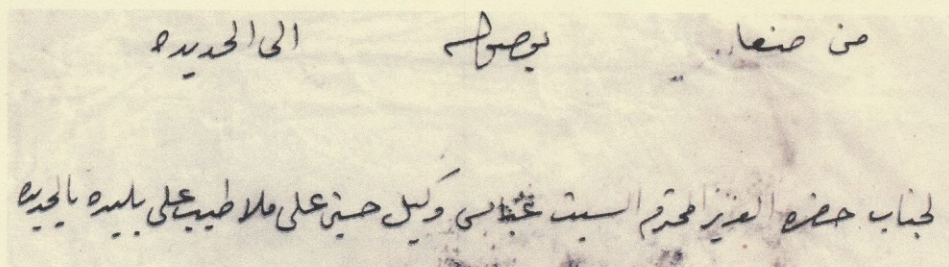 من صنعا بوصوله الى الحديده
لجناب حضرة العزيز المحترم السيت عباس وكيل حسين على ملا طيب على بليده بالحديده